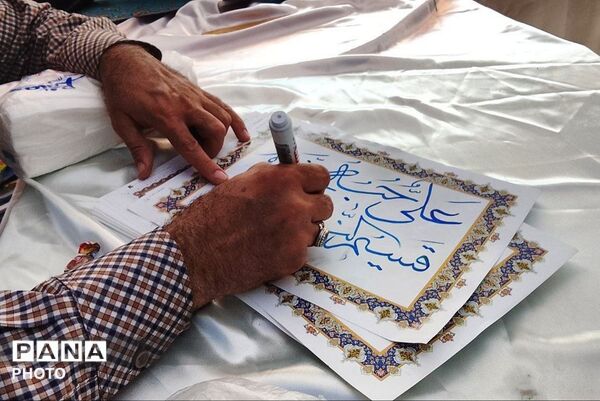 علیٌّ حُبُّه
قسیم
PANA
PHOTO